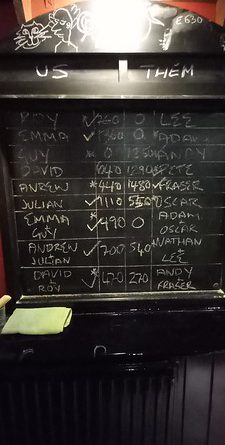 £630
US THEM
ROY ✓ 0 LEE
EMMA ✓ 0 ADAM
GUY * 0 ANDY
DAVID PETE
ANDREW * 440 1480 ✓ FRASER
JULIAN ✓ 1110 OSCAR
EMMA ADAM
GUY ✓ 490 0 OSCAR
ANDREW NATHAN
JULIAN ✓ 700 540 LEE
DAVID ANDY
+ ROY ✓ 270 + FRASER